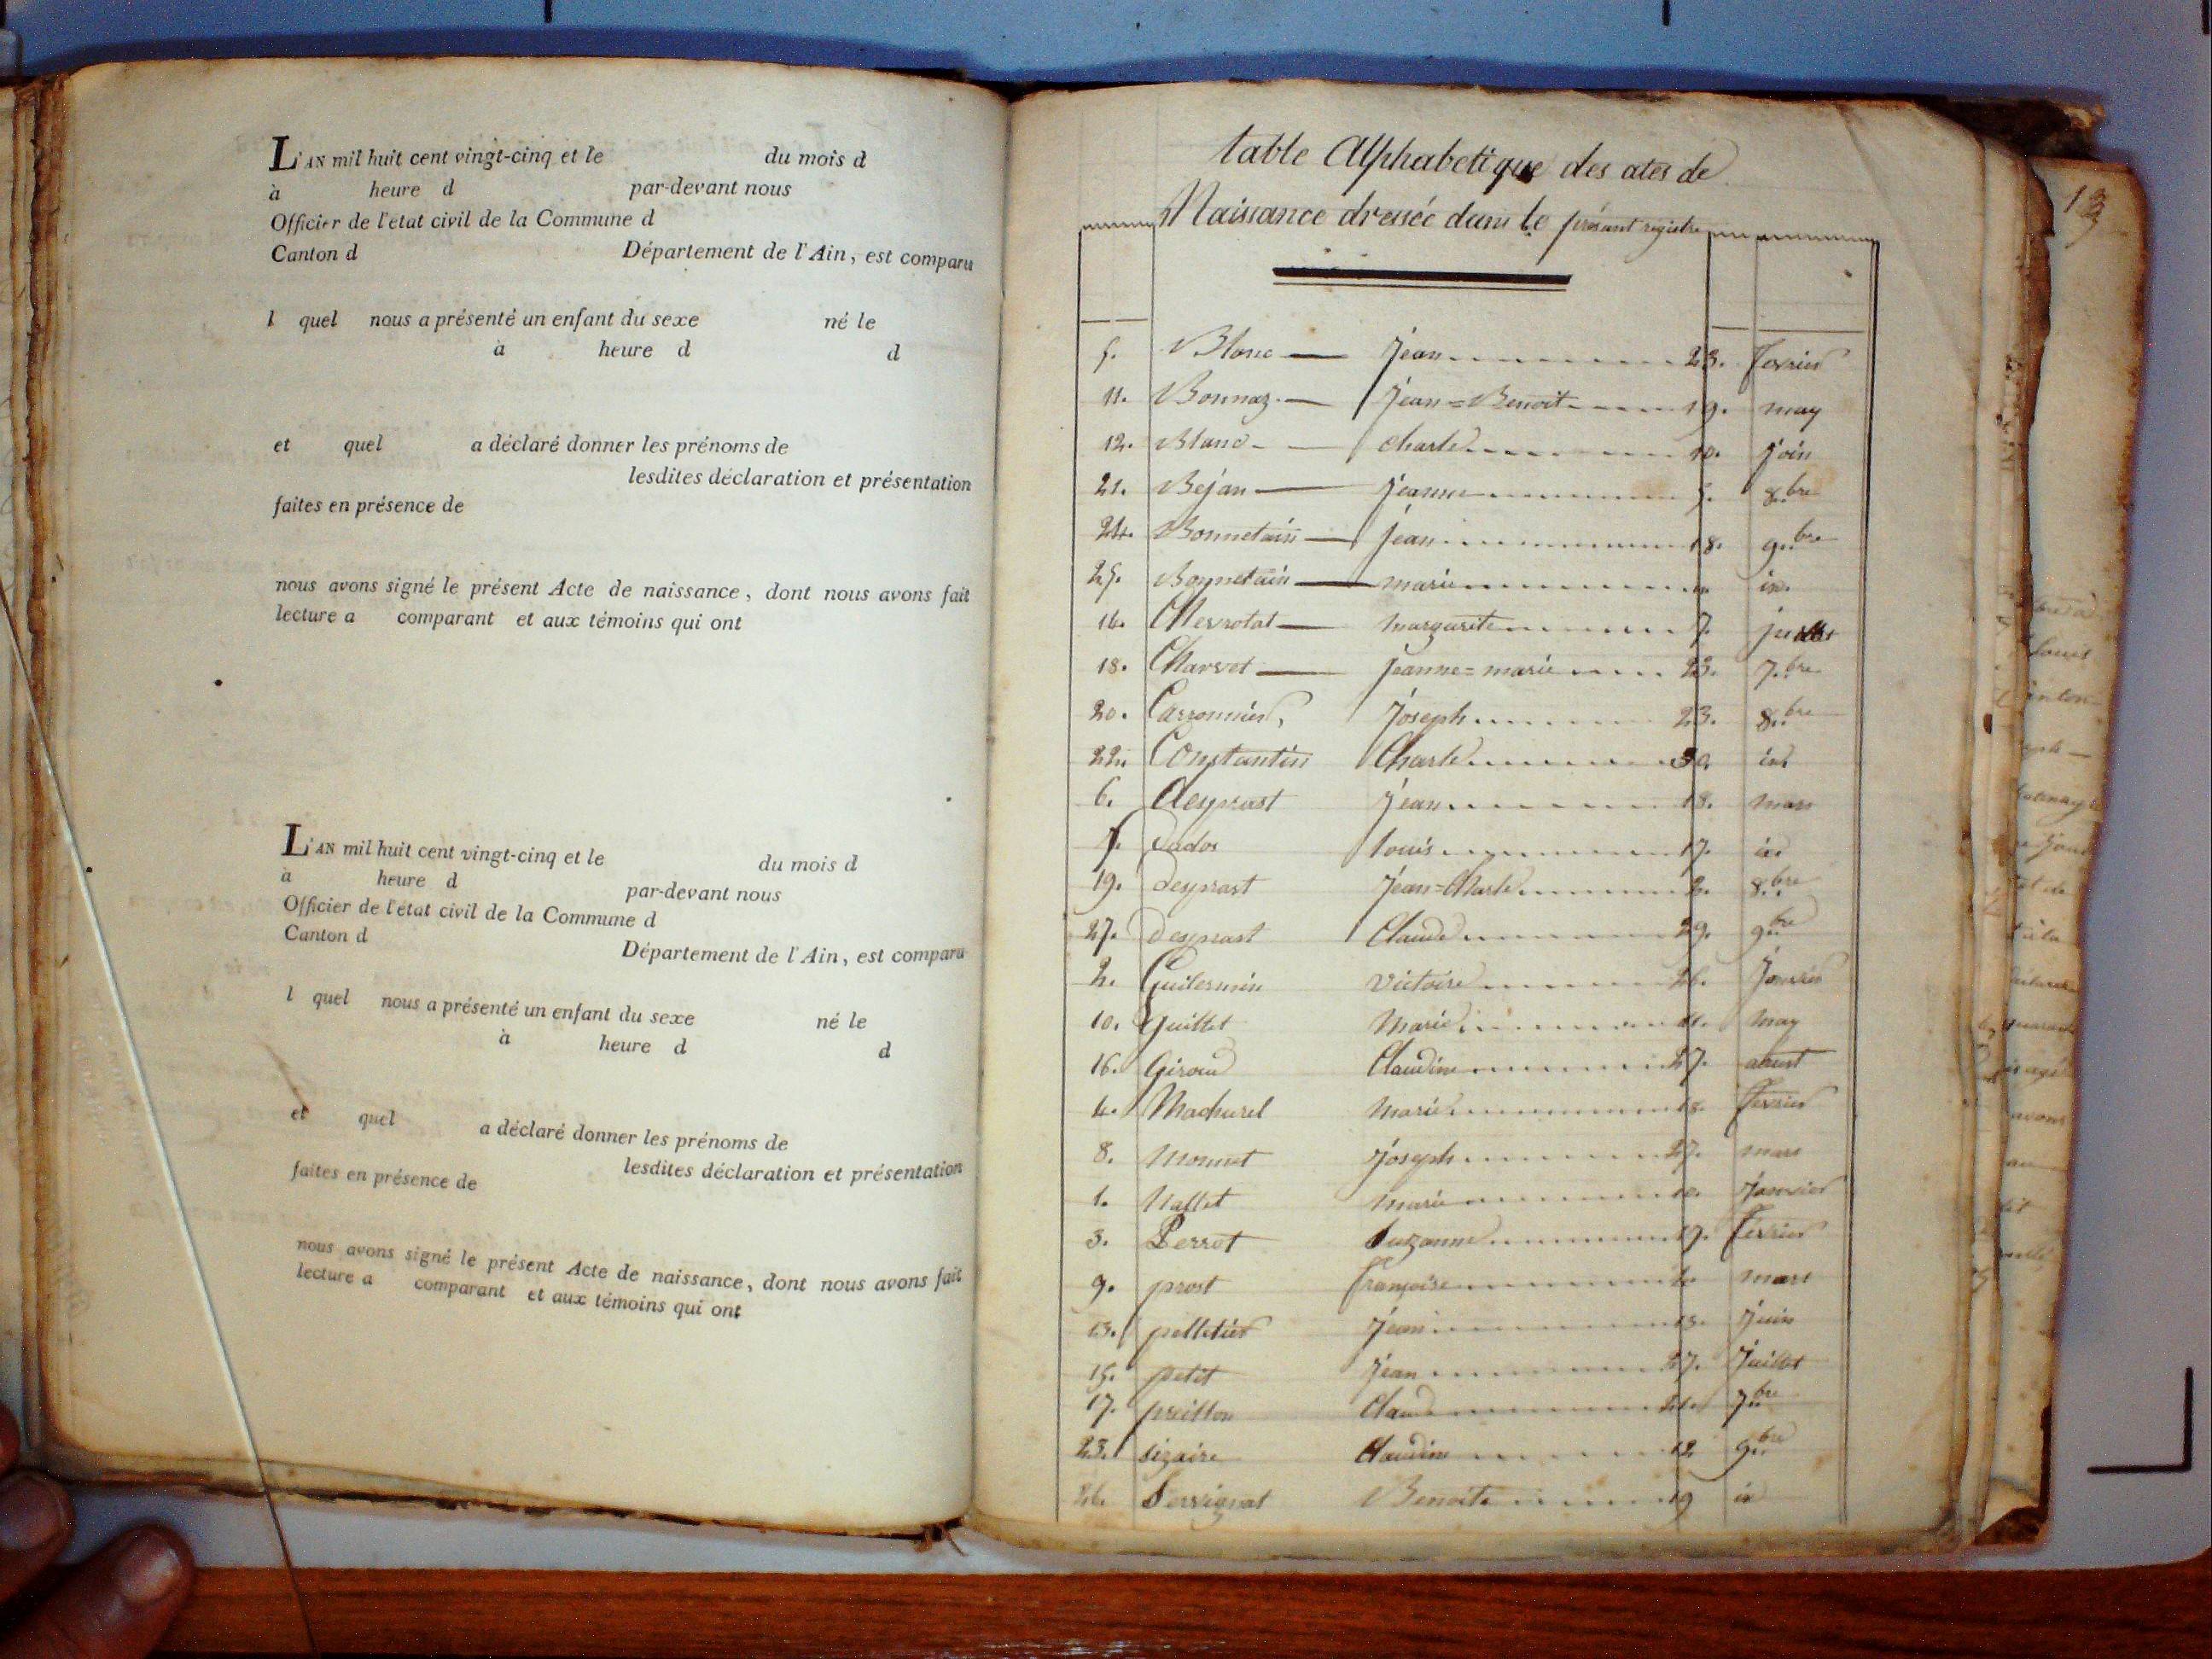 L'AN mil huit cent vingt-cinq et le du mois d
à heure d par-devant nous
Officier de l'état civil de la Commune d
Canton d Département de l'Ain, est comparu
l quel nous a présenté un enfant du sexe né le
à heure d d
et quel a déclaré donner les prénoms de
lesdites déclaration et présentation
faites en présence de
nous avons signé le présent Acte de naissance, dont nous avons fait
lecture a comparant et aux témoins qui ont
L'AN mil huit cent vingt-cinq et le du mois d
à heure d par-devant nous
Officier de l'état civil de la Commune d
Canton d Département de l'Ain, est comparu
l quel nous a présenté un enfant du sexe né le
à heure d d
et quel a déclaré donner les prénoms de
lesdites déclaration et présentation
faites en présence de
nous avons signé le présent Acte de naissance, dont nous avons fait
lecture a comparant et aux témoins qui ont
table Alphabetique des ates de
Naissance dressée dans le présant registre
5. Blanc Jean 23. fevrier
11. Bonnaz Jean=Benoit 19. may
12. Blanc Charle 10. join
21. Bejan jeanne 5. 8.bre
24. Bonnetain jean 18. 9.bre
25. Bonnetain marie id.
14. Chevrotat margarite 7. juillet
18. Charvet jeanne=marie 23. 7.bre
20. Carronnier Joseph 23. 8.bre
22. Constantin Charle 30 id
6. desprast Jean 18. mars
7. dados louis 17. id
19. desprast Jean=Charle 2. 8.bre
27. desprast Claude 29. 9.bre
2. Guilermin victoire 26. Janvier
10. Guillet Marie may
16. Giroud Claudine 27. aoust
4. Machurel Marie 18. fevrier
8. Monnet Joseph 27. mars
1. Nallet marie 10. Janvier
3. Perret Suzanne 17. fevrier
9. prost françoise mars
13. pelletier Jean 13. Juin
15. petit Jean 27. Juillet
17. Claude 21. 7.bre
23. sizaire Claudine 12 9.bre
26. Serrignat Benoite 19 id
13